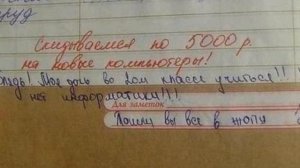 труд
Скидываемся по 5000 р.
на новые компьютеры!
Моя дочь во 2ом классе учиться!!!
нет информатики!!!
Для заметок
Пошли вы все в жопу